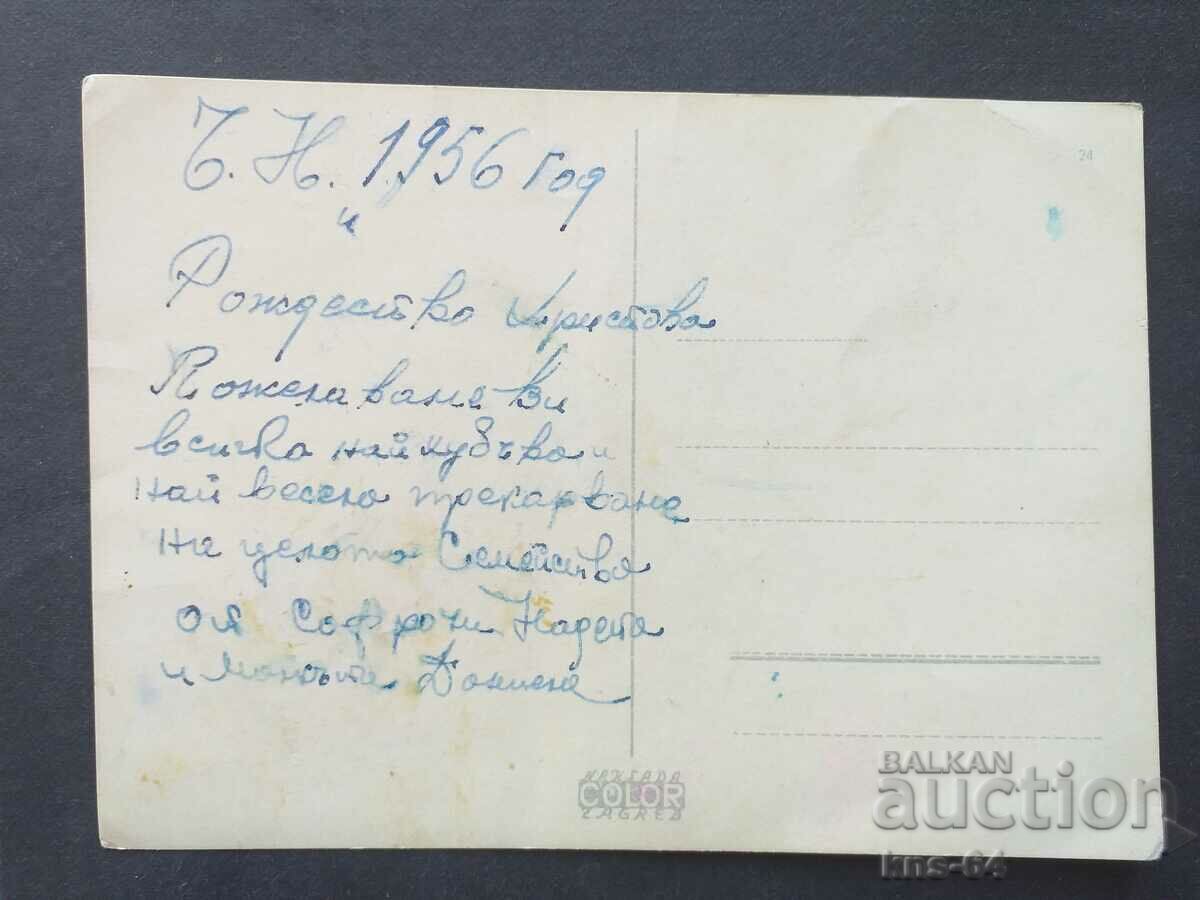 Ч. Н. 1956 год
и
Рождество Христово
Пожелаваме ви
всичко най хубъво и
най весело прекарване
на целото Семейство
от Софрони
и Данаил
24
НАКЛАДА
COLOR
ZAGREB
BALKAN
auction
kns-64